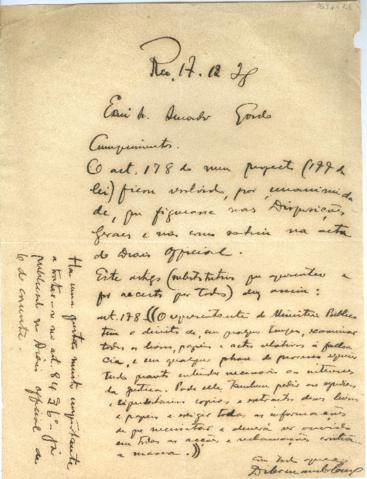 Rio, 17. 12 28
Exmo Sr. Senador Gordo
Cumprimentos.
O art. 178 do meu projecto (199 da
lei) ficou resolvido, por unanimida
de, que figurasse nas Disposições
Geraes e não como sahiu na acta
do Diario Official.
Este artigo (substitutivo que apresentei e
foi acceito por todos) diz assim:
art. 178 ((O representante do Ministerio Publico
tem o direito de, em qualquer tempo, examinar
todos os livros, papeis e actos relativos á fallen
cia, e em qualquer phase do processo requerer
tudo quanto entender necessario aos interesses
da justiça. Pode elle tambem pedir aos syndicos
e liquidatarios copias e extractos dos livros
e papeis e exigir todas as informações
de que necessitar e deverá ser ouvido
em todas as acções e reclamações contra
a massa.))
Com todo apreço
Ha uma questão muito importante
a tratar-se no art. 84 § 6º - já
publicado no Diario Official de
6 do corrente